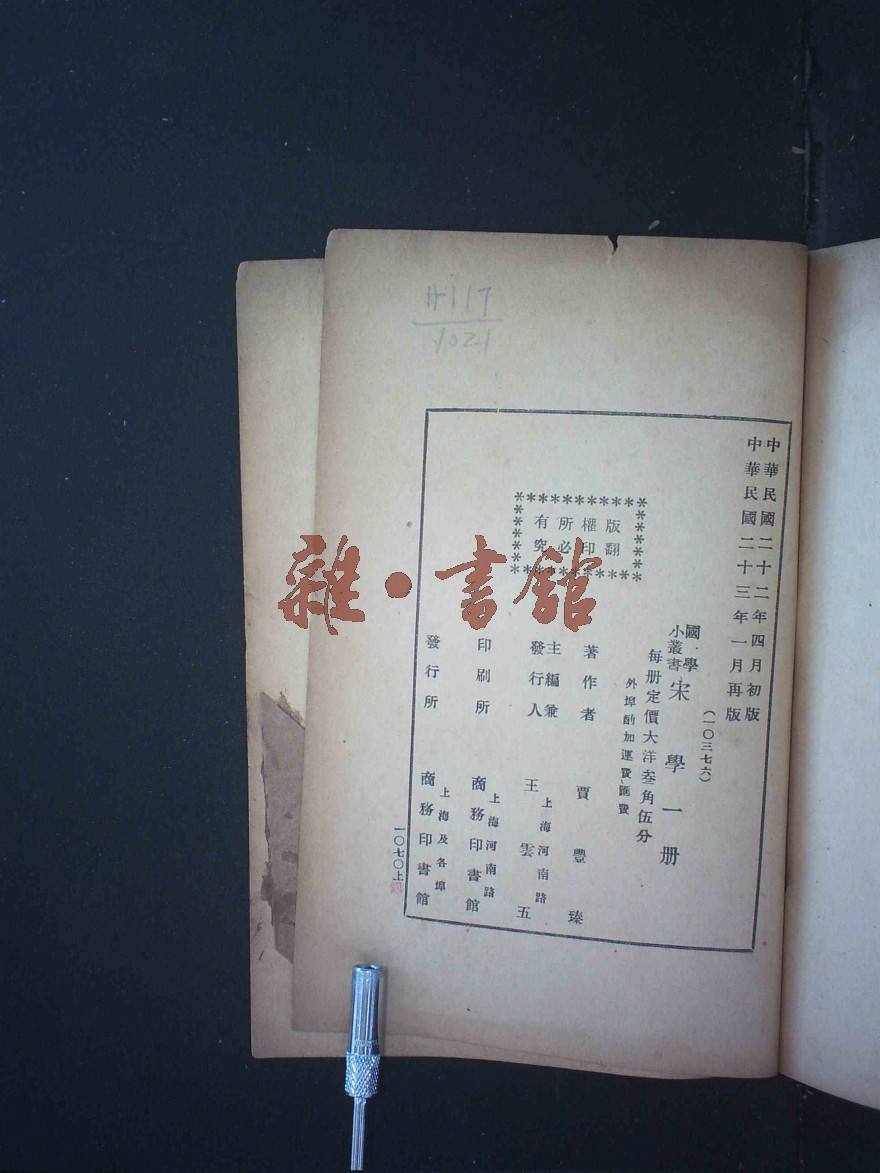 H117
1021
中華民國二十二年四月初版
中華民國二十三年一月再版
(一〇三七六)
國學
小叢書
宋學一册
每册定價大洋叁角伍分
外埠酌加運費匯費
版權所有
翻印必究
著作者 賈豐臻
主編兼
發行人
上海河南路
王雲五
印刷所
上海河南路
商務印書館
發行所
上海及各埠
商務印書館
一〇七〇上
雜·書館